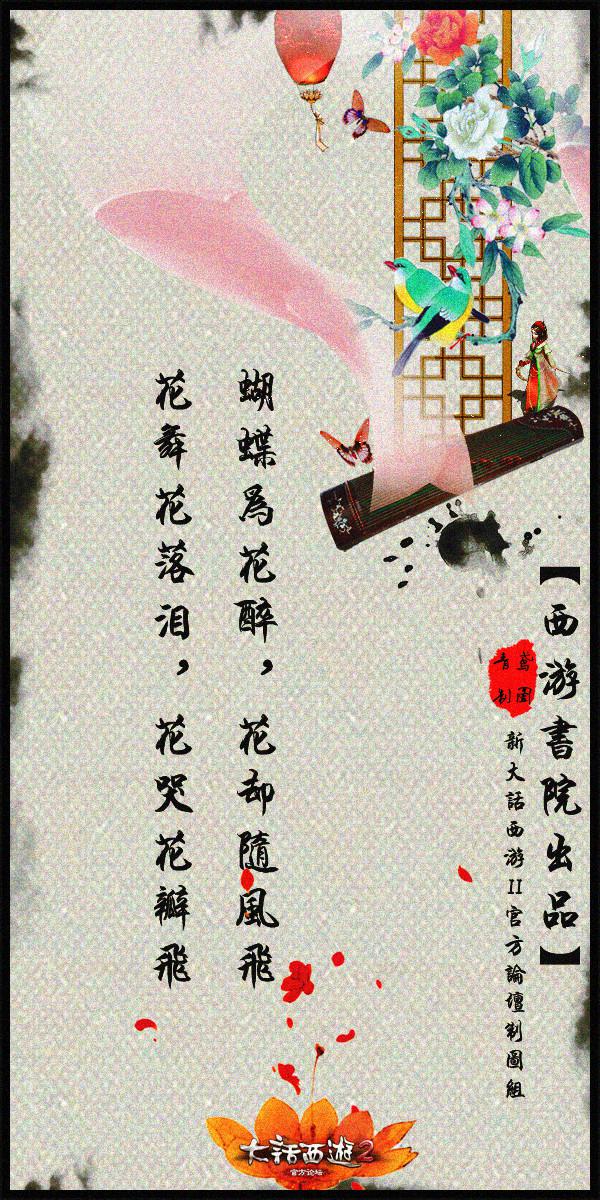 【西游書院出品】
新大話西游II官方論壇制圖組
蝴蝶為花醉，花却隨風飛
花舞花落泪，花哭花瓣飛
大话西遊2
官方论坛